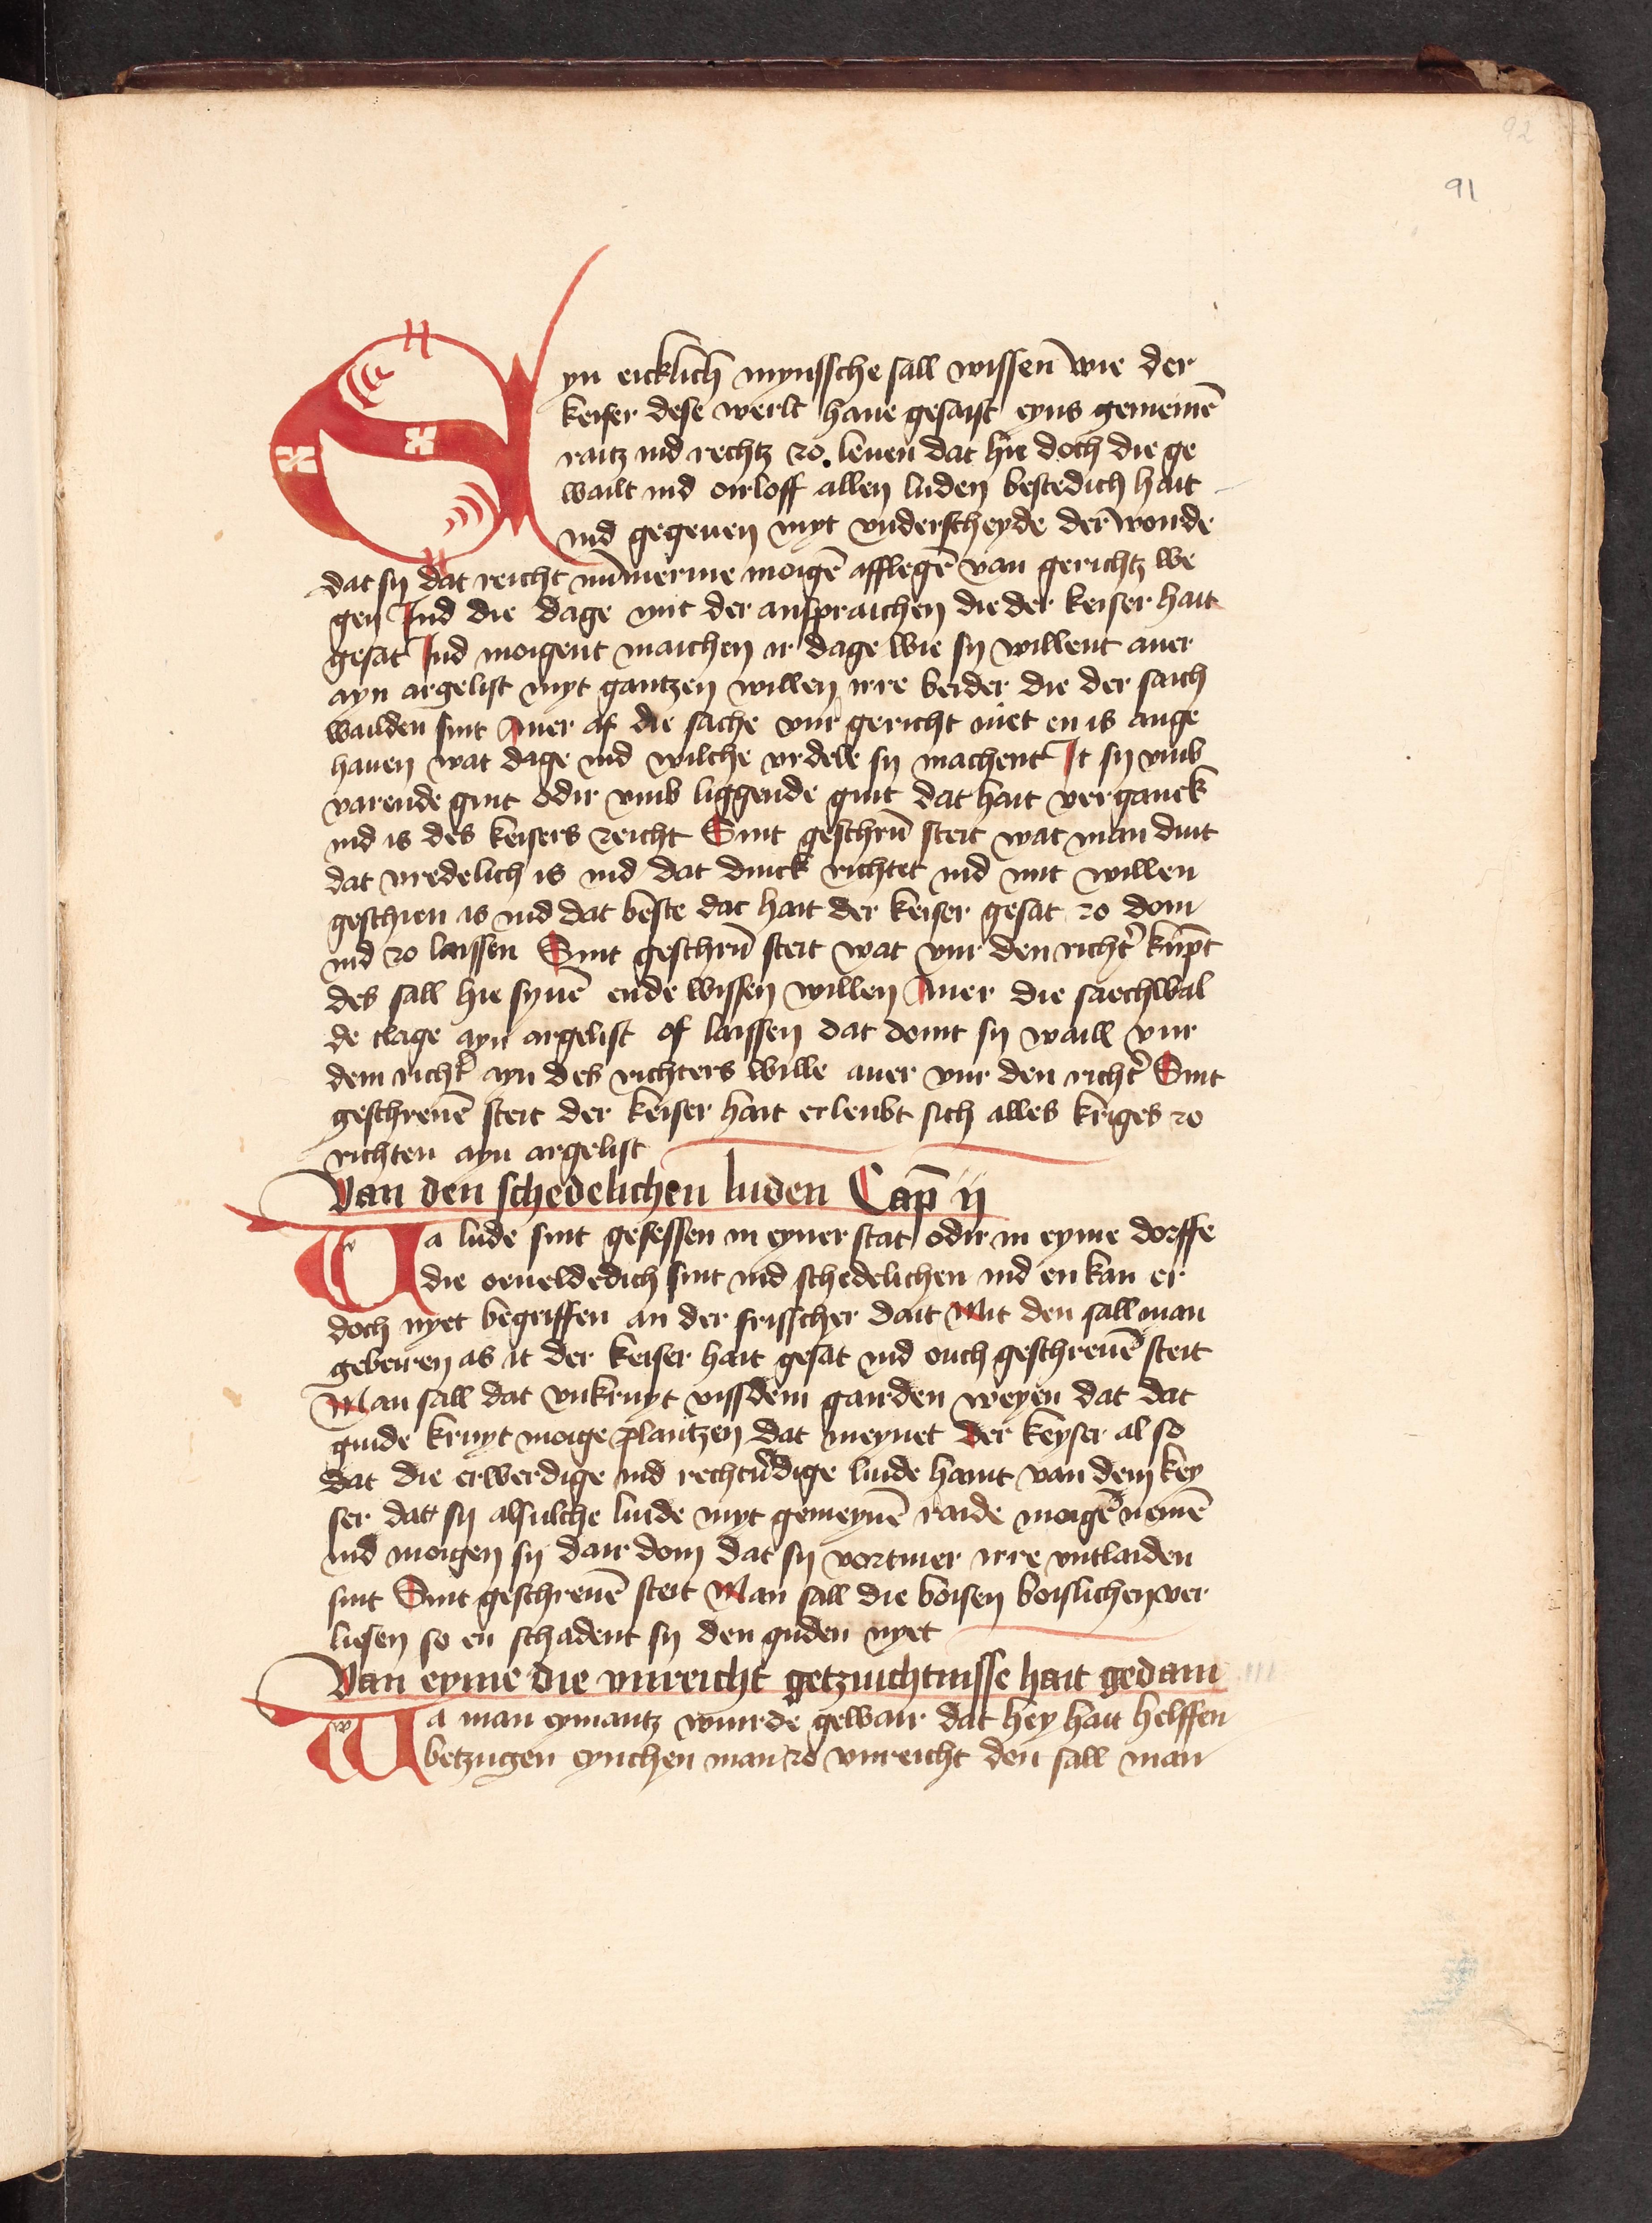 92
91
Eyn eicklich mynssche sall wissen wie der
keiser dese werlt haue gesatst eyns gemeinē
raitz ind rechtz zo leuen dat hie doch die ge
wailt ind oirloff allen luden bestedich hait
ind gegeuen myt vnderscheyde der wonde
dat sy dat reicht nūmerme moigē afflegē van gerichtz we
gen Ind die dage mit der anspraichen die der keiser hait
gesat Ind moigent maichen ir dage wie sy willent auer
ayn argelist myt gantzen willen irre beider die der saich
wailden sint Auer of die sache vur gericht niet en is ange
hauen wat dage ind wilche vrdele sy machent It sy vmb
varende guit odir vmb liggende guit dat hait vergанck
ind is des keisers reicht Sint geschrū steit wat man duit
dat vredelich is ind dat dinck richtet ind mit willen
geschien is ind dat beste dat hait der keiser gesat zo doin
ind zo laissen Sint geschrū steit wat vur den richt' kūpt
des sall hie synē ende wissen willen Auer die saechwal
de clage ayn argelist of laissen dat doint sy waill vur
dem richt' ayn des richters wille auer vur den richt' Sint
geschreuē steit der keiser hait erleubt sich alles krīges zo
richten ayn argelist
Van den schedelichen luden Cap ij
Wa lude sint gesessen in eyner stat odir in eyme dorffe
die oeueldedich sint ind schedelichen ind en kan er
doch nyet begriffen an der frisscher dait Mit den sall man
gebeiren as it der keiser hait gesat ind ouch geschreuē steit
Man sall dat vnkruyt vissdem gaırden weyen dat dat
guide kruyt moige plantzen dat meynet der keyser al so
dat die erwerdige ind rechtūdige luide haint van dem key
ser dat sy alsulche luide myt gemeynē raide moigē nemē
ind moigen sy dair doin dat sy vortmer irre vntlaiden
sint Sint geschreuē steit Man sall die boisen boislichen ver
liesen so en schadent sy den guden nyet
Van eyme die vnreicht getzuichtnisse hait gedain iii
Wa man eymantz wuirde gewair dat hey hait helffen
betzugen eynchen man zo vnreicht den sall man